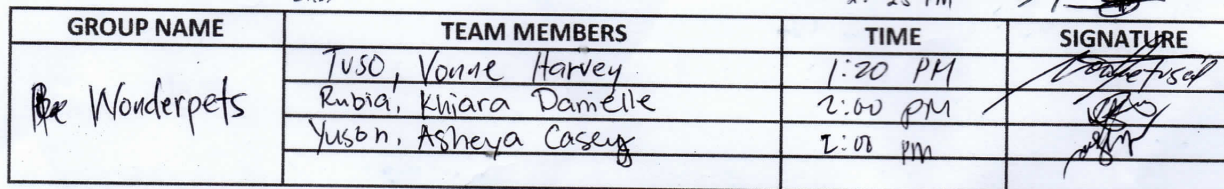 GROUP NAME TEAM MEMBERS TIME SIGNATURE
Tuso, Vonne Harvey 1:20 PM
Wonderpets Rubia, Khiara Danielle 2:00 PM
Yuson, Asheya Casey 2:00 PM